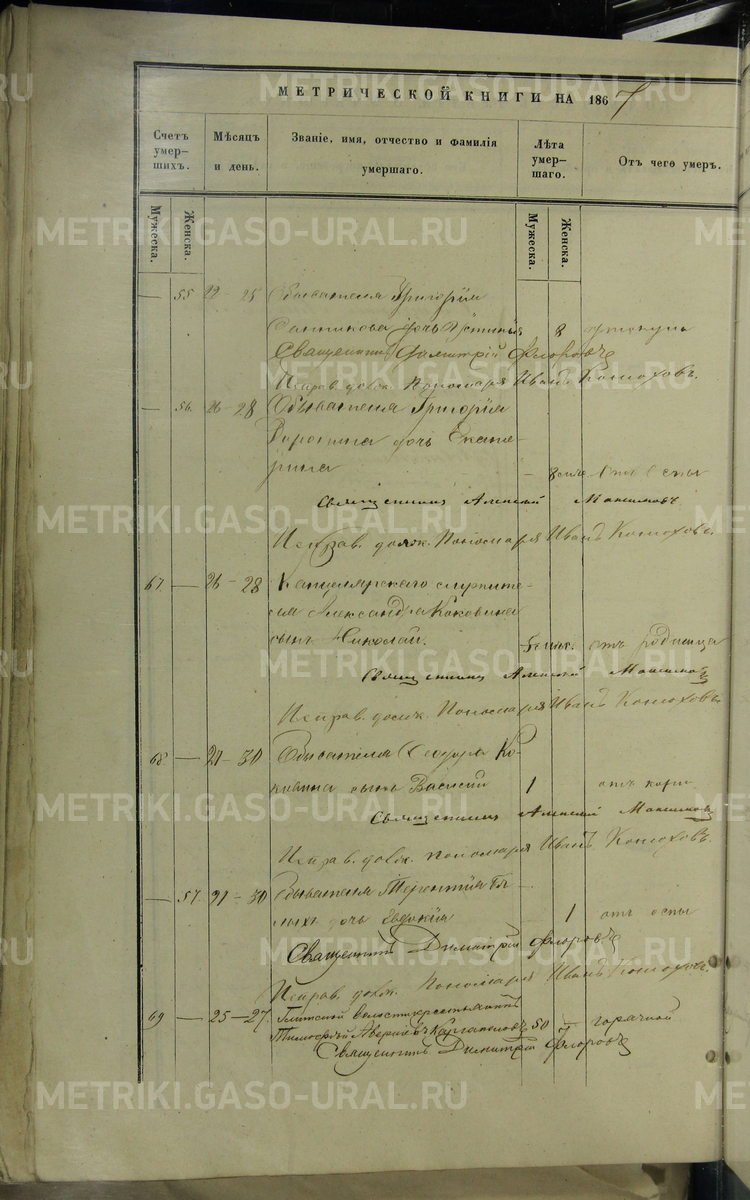 МЕТРИЧЕСКОЙ КНИГИ НА 1867
Счетъ умер-шихъ. Мѣсяцъ и день. Званіе, имя, отчество и фамилія умершаго. Лѣта умер-шаго. Отъ чего умеръ.
Мужеска. Женска. Мужеска. Женска.
— 55 22–25 Обывателя Григорія
дочь 8
Священникъ Димитрій Флоровъ
Исправ. долж. Пономаря Иванъ Конюховъ.
— 56. 26–28 Обывателя Григорія
дочь Екате-
рина Отъ оспы
Священникъ Алексій Максимовъ
Исправ. долж. Пономаря Иванъ Конюховъ.
67. — 26–28 Канцелярскаго служите-
ля Александра Коковина
сынъ Николай. отъ родимца
Священникъ Алексій Максимовъ
Исправ. долж. Пономаря Иванъ Конюховъ.
68. — 27–30 Обывателя Ѳеодора Ко-
сынъ Василій 1 отъ кори
Священникъ Алексій Максимовъ
Исправ. долж. пономаря Иванъ Конюховъ.
— 57. 27–30 Обывателя Терентія
дочь Евдокія 1 отъ оспы
Священникъ Димитрій Флоровъ
Исправ. долж. Пономаря Иванъ Конюховъ.
69 — 25–27. волости крестьянинъ
Тимофей Каргаполовъ 50 — горячкой
Священникъ Димитрій Флоровъ
METRIKI.GASO-URAL.RU